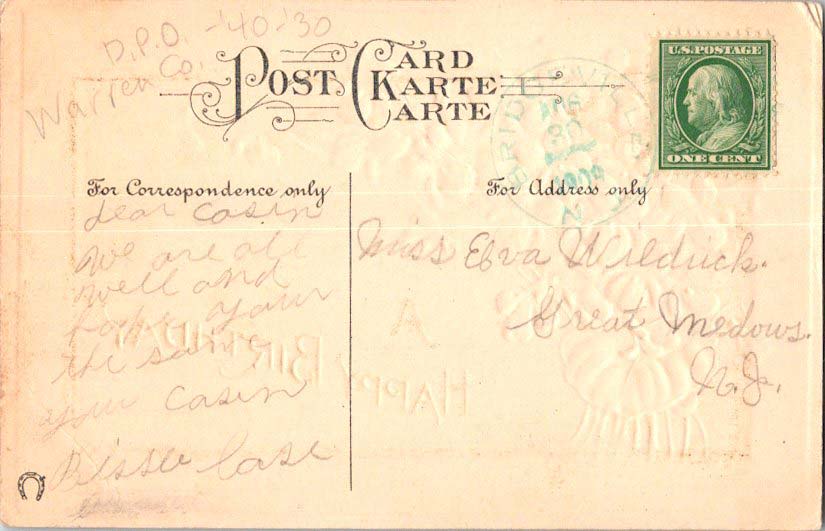 D.P.O. -'40-'30
Warren Co.
POST CARD
KARTE
CARTE
U.S. POSTAGE
ONE CENT
BRIDGEVILLE
AUG
N
For Correspondence only
For Address only
dear Casin
we are all
well and
hope your
the same
your Casin
Case
Miss Elva Wildrick.
Great Medows.
N.J.
A
HAPPY BIRTHDAY